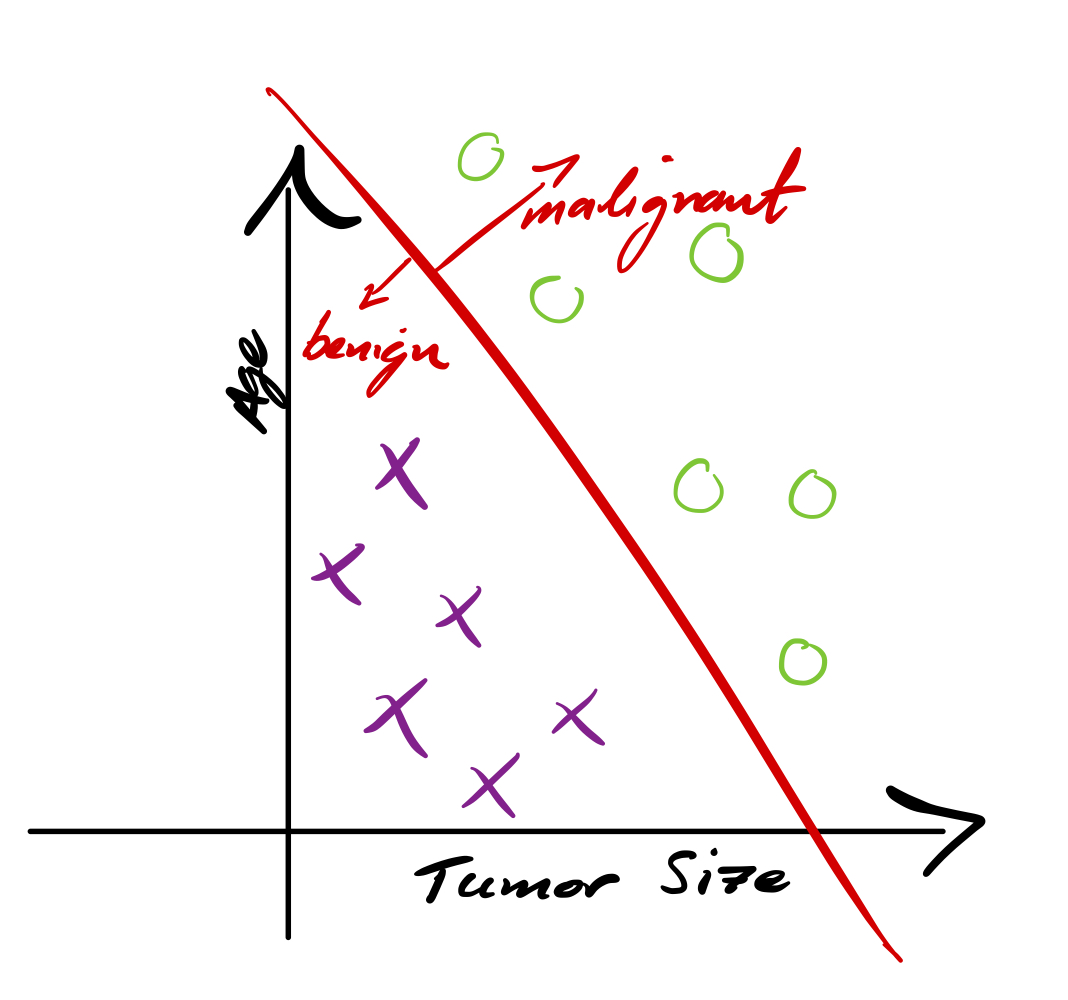 malignant
benign
Age
Tumor Size